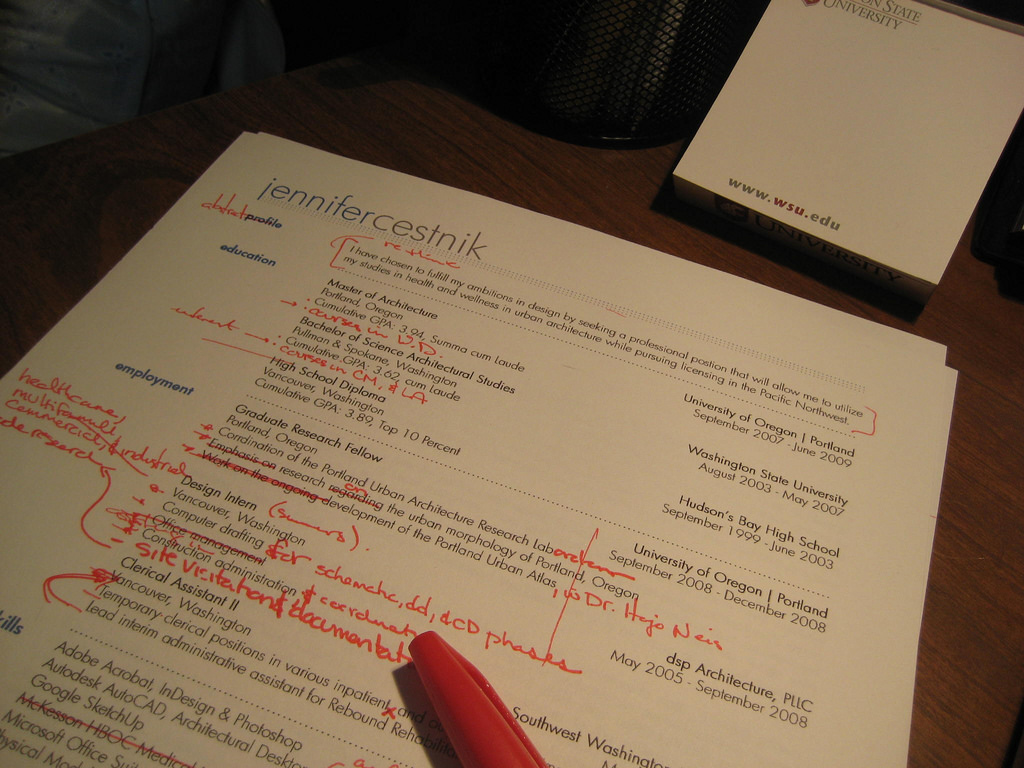 ON STATE
UNIVERSITY
www.wsu.edu
UNIVERSITY
jennifercestnik
abstract profile
re-think
I have chosen to fulfill my ambitions in design by seeking a professional postion that will allow me to utilize
my studies in health and wellness in urban architecture while pursuing licensing in the Pacific Northwest.
education
Master of Architecture
University of Oregon | Portland
Portland, Oregon
September 2007 - June 2009
Cumulative GPA: 3.94, Summa cum Laude
courses in U.D.
Bachelor of Science Architectural Studies
Washington State University
Pullman & Spokane, Washington
August 2003 - May 2007
Cumulative GPA: 3.62, cum Laude
interest
courses in CM, & LA
High School Diploma
Hudson's Bay High School
Vancouver, Washington
September 1999 - June 2003
Cumulative GPA: 3.89, Top 10 Percent
employment
Graduate Research Fellow
University of Oregon | Portland
Portland, Oregon
September 2008 - December 2008
Cordination of the Portland Urban Architecture Research Laboratory
Emphasis on research regarding the urban morphology of Portland, Oregon
Work on the ongoing development of the Portland Urban Atlas, w Dr. Hajo Neis
healthcare,
multifamily,
commercial, & industrial
code research
Design Intern (summers).
dsp Architecture, PLLC
Vancouver, Washington
May 2005 - September 2008
Computer drafting for schematic, dd, & CD phases
Office management
Construction administration & coordinat
- site visitation & documentat
Clerical Assistant II
Southwest Washington
Vancouver, Washington
Temporary clerical positions in various inpatient and
Lead interim administrative assistant for Rebound Rehabilit
kills
Adobe Acrobat, InDesign & Photoshop
Autodesk AutoCAD, Architectural Deskto
Google SketchUp
McKesson HBOC Medica
Microsoft Office Suit
hysical Mod